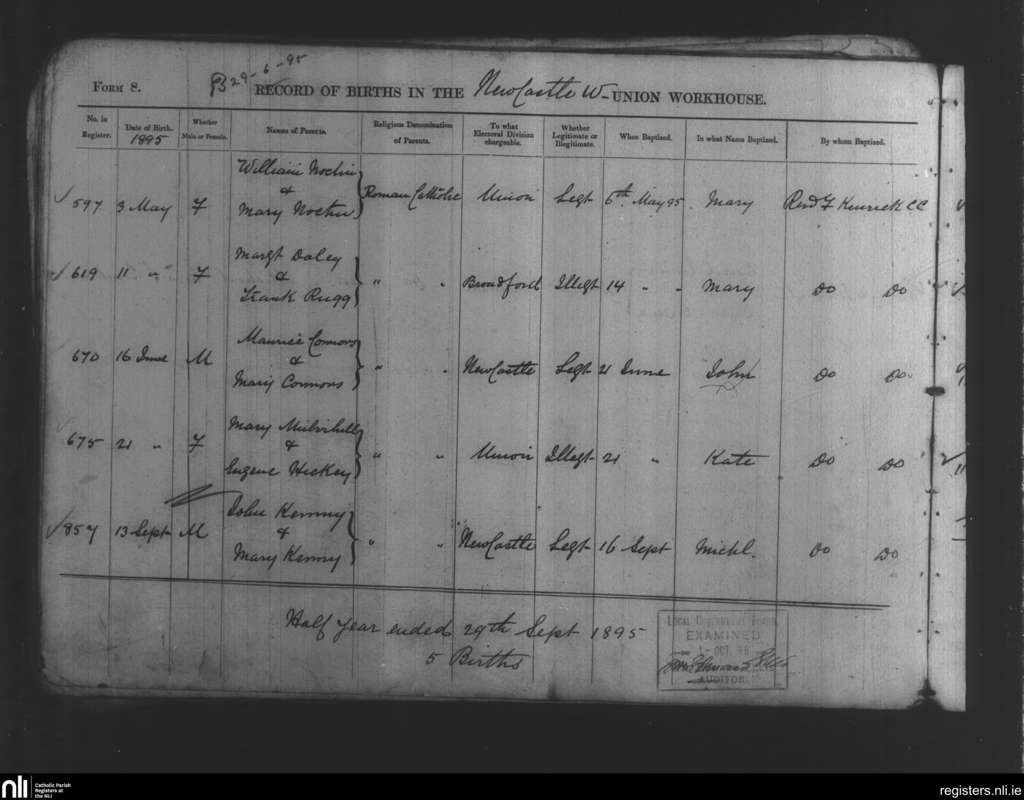 Form 8. B 29-6-95 RECORD OF BIRTHS IN THE NewCastle W- UNION WORKHOUSE.
No. in Register. Date of Birth. 1895 Whether Male or Female. Names of Parents. Religious Denomination of Parents. To what Electoral Division chargeable. Whether Legitimate or Illegitimate. When Baptized. In what Name Baptized. By whom Baptized.
William
597 3 May F & Roman Catholic Union Legt 6th May 95 Mary Revd F Kenrick CC
Mary
Margt Daley
619 11 " F & " " Broadford Illegt 14 " " Mary Do Do
Frank Rugg
Maurice Connors
670 16 June M & " " NewCastle Legt 21 June John Do Do
Mary Connors
Mary Mulvihill
675 21 " F & " " Union Illegt 21 " Kate Do Do
Eugene Hickey
John Kenny
857 13 Sept M & " " NewCastle Legt 16 Sept Michl. Do Do
Mary Kenny
Half year ended 29th Sept 1895
5 Births
LOCAL GOVERNMENT BOARD
EXAMINED
OCT 95
AUDITOR
nli Catholic Parish Registers at the NLI
registers.nli.ie